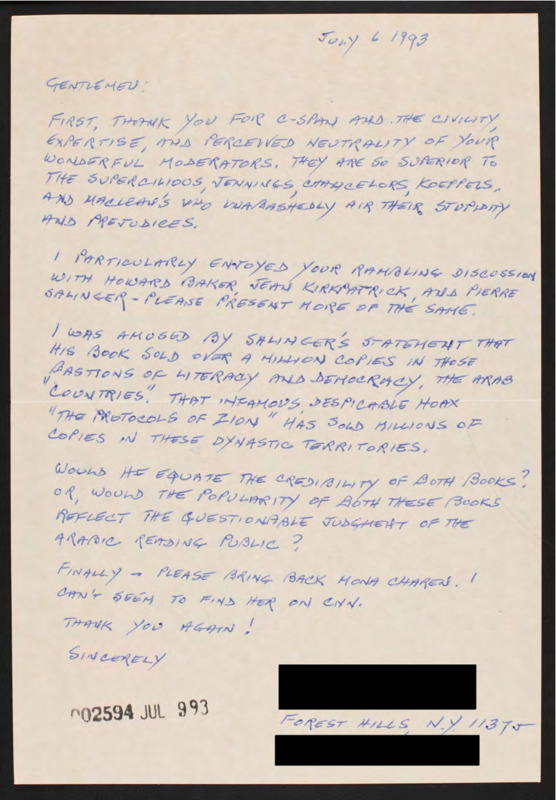 JULY 6 1993
GENTLEMEN:
FIRST, THANK YOU FOR C-SPAN AND THE CIVILITY,
EXPERTISE, AND PERCEIVED NEUTRALITY OF YOUR
WONDERFUL MODERATORS. THEY ARE SO SUPERIOR TO
THE SUPERCILIOUS, JENNINGS, CHANCELORS, KOEPPELS,
AND MACLEAN'S WHO UNABASHEDLY AIR THEIR STUPIDITY
AND PREJUDICES.
I PARTICULARLY ENJOYED YOUR RAMBLING DISCUSSION
WITH HOWARD BAKER, JEAN KIRKPATRICK, AND PIERRE
SALINGER - PLEASE PRESENT MORE OF THE SAME.
I WAS AMUSED BY SALINGER'S STATEMENT THAT
HIS BOOK SOLD OVER A MILLION COPIES IN THOSE
BASTIONS OF LITERACY AND DEMOCRACY, THE ARAB
"COUNTRIES". THAT INFAMOUS, DESPICABLE HOAX
"THE PROTOCOLS OF ZION" HAS SOLD MILLIONS OF
COPIES IN THESE DYNASTIC TERRITORIES.
WOULD HE EQUATE THE CREDIBILITY OF BOTH BOOKS?
OR, WOULD THE POPULARITY OF BOTH THESE BOOKS
REFLECT THE QUESTIONABLE JUDGMENT OF THE
ARABIC READING PUBLIC?
FINALLY - PLEASE BRING BACK MONA CHAREN. I
CAN'T SEEM TO FIND HER ON CNN.
THANK YOU AGAIN!
SINCERELY
002594 JUL 993
FOREST HILLS, N.Y. 11375